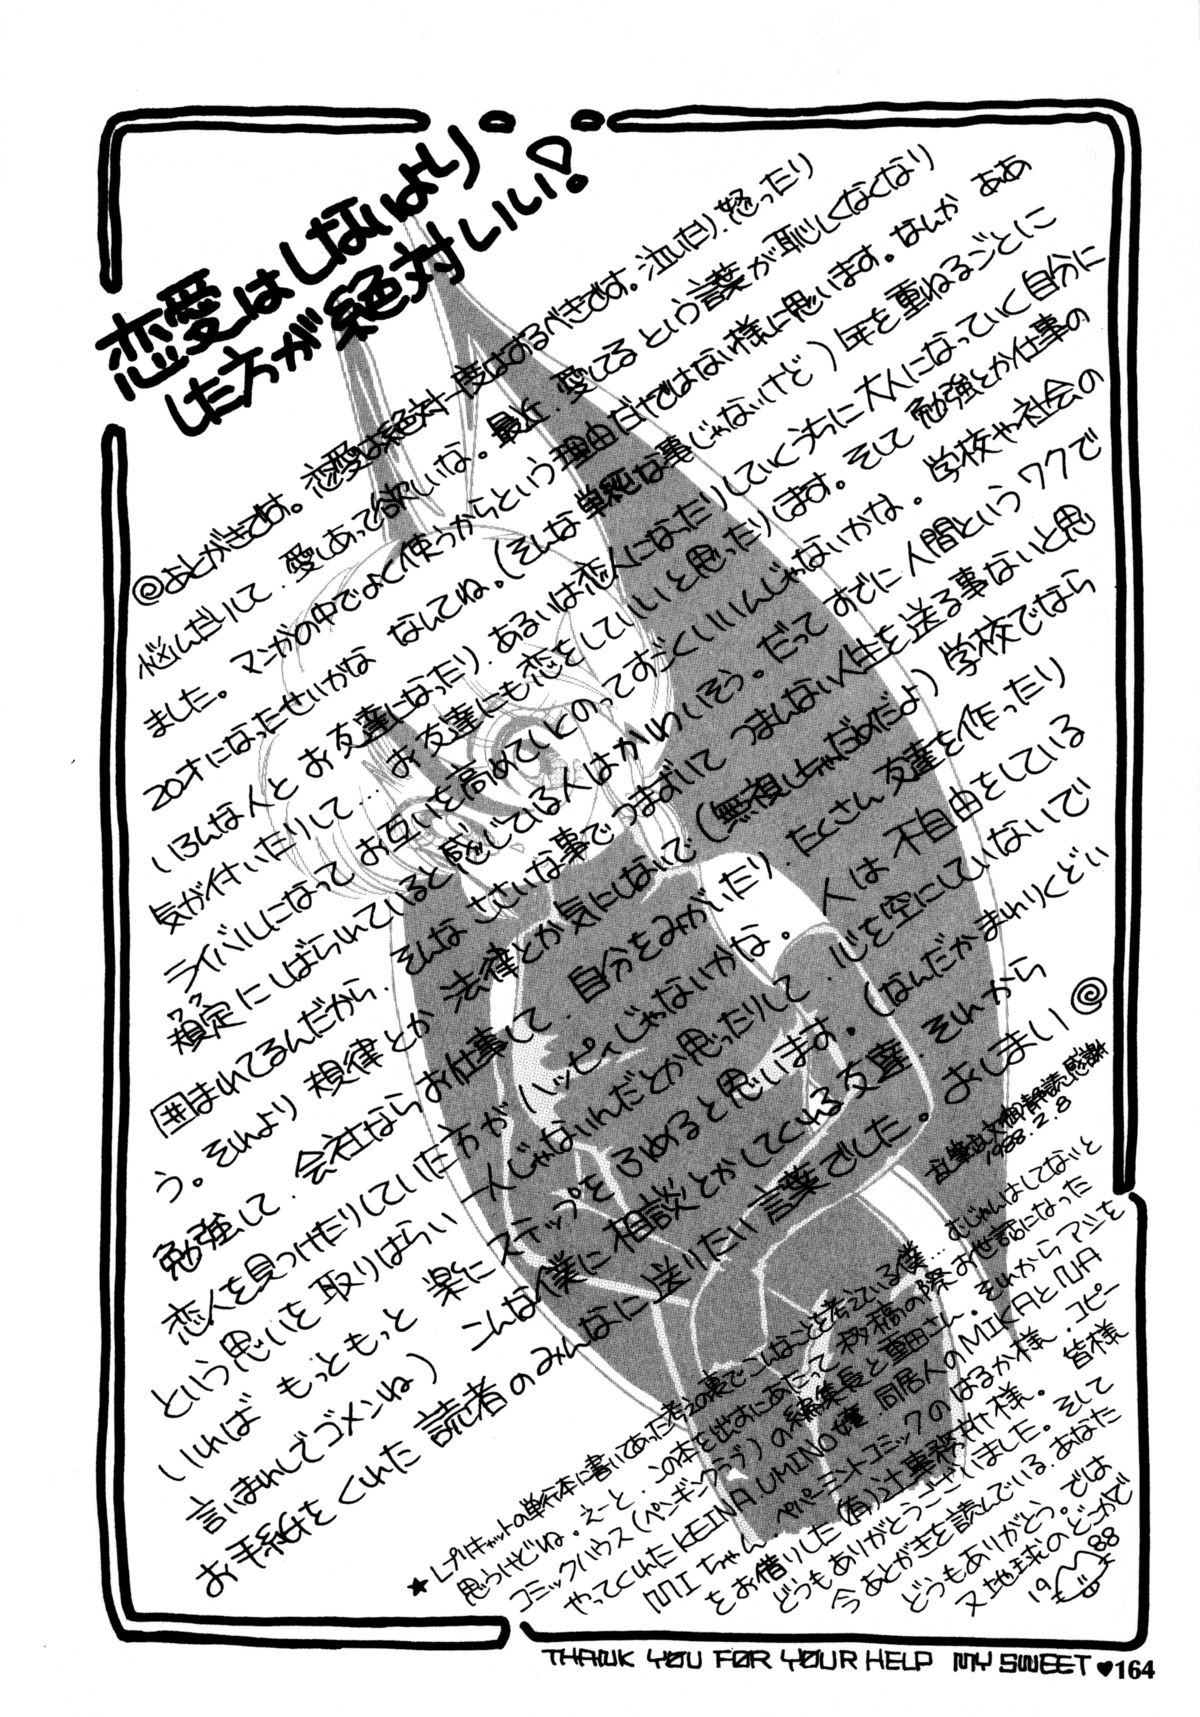 恋愛はしないより
した方が絶対いい!
◎あとがきです。恋愛は絶対一度はするべきです。泣いたり、怒ったり
悩んだりして、愛しあって欲しいな。最近、愛してるという言葉が恥しくなくなり
ました。マンガの中でよく使うからという理由だけではない様に思います。なんか ああ
20才になったせいかな なんてね。(そんな単純な事じゃないけど)年を重ねるごとに
いろんな人とお友達になったり、あるいは恋人になったりしていくうちに大人になっていく自分に
気が付いたりして…お友達にも恋をしていいと思ったりします。そして勉強とか仕事の
ライバルになってお互いを高めていとのってすごくいいんじゃないかな。学校や社会の
規定にしばられていると感じている人はかわいそう。だってすでに人間というワクで
囲まれてるんだから、そんなささいな事でつまずいてつまんない人生を送る事ないと思
う。それより規律とか法律とか気にしないで(無視しちゃだめだよ)学校でなら
勉強して、会社ならお仕事して、自分をみがいたり、たくさん友達を作ったり
恋人を見つけたりしていた方がハッピィじゃないかな。人は不自由をしている
という思いを取りはらい 一人じゃないんだとか思ったりして、心を空にしていないで
いれば もっともっと楽にステップをふめると思います。(なんだかまわりくどい
言いまわしでゴメンね)こんな僕に相談とかしてくれる友達、それから
お手紙をくれた読者のみんなに送りたい言葉でした。おしまい◎
乱筆乱文御静読感謝
1988.2.8
★レプリキャットの単行本に書いてあった考えの裏でこんなことを考えている僕…むじゅんはしてないと
思うけどね。えーと、この本を出すにあたって移稿の際お世話になった
コミックハウス(ペンギンクラブ)の編集長と重田さん。それからアシを
やってくれたKEINA.UMINO嬢、同居人のMIKAとNA
MIちゃん、ペパーミントコミックのはるか様、コピー
をお借りした(有)辻事務所様。皆様
どうもありがとうございました。そして
今あとがきを読んでいるあなた
どうもありがとう。では
又地球のどこかで
1988
THANK YOU FOR YOUR HELP MY SWEET ♥164